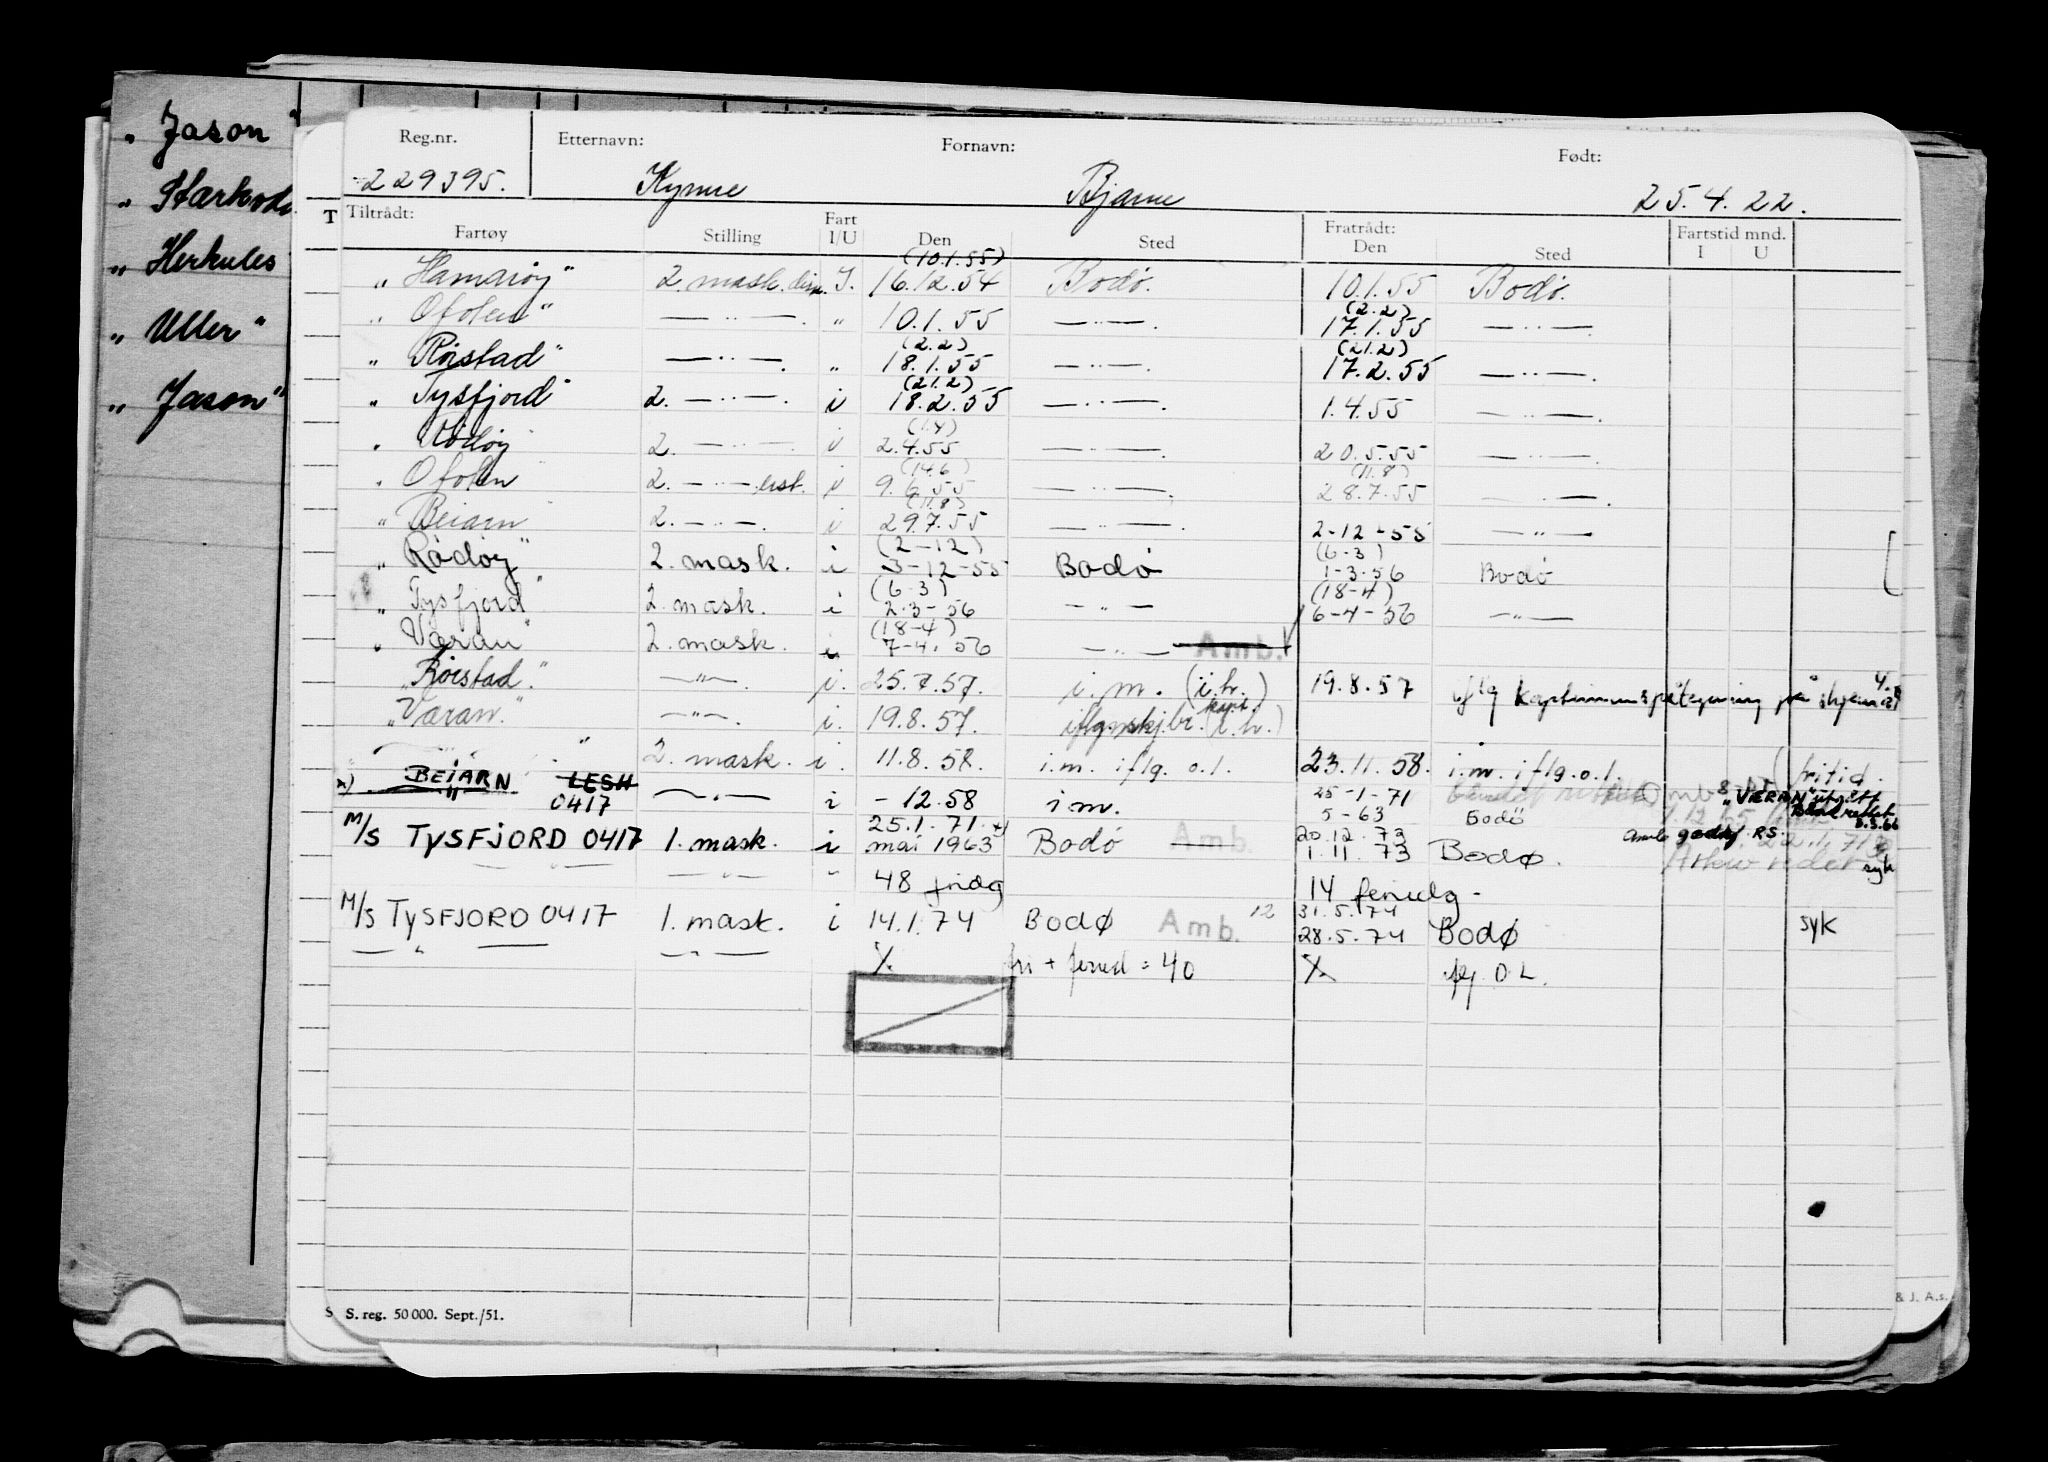 „ Jason "
„ Starkod
„ Herkules
„ Uller "
„ Jason "
Reg.nr. Etternavn: Fornavn: Født:
229395. Kynne Bjarne 25.4.22.
T Tiltrådt: Fart Fratrådt: Fartstid mnd.
Fartøy Stilling I/U Den Sted Den Sted I U
(10.1.55)
„ Hamarøy" 2. mask. I. 16.12.54 Bodø. 10.1.55 Bodø.
(2.2)
„ Ofoten" — „ — . „ 10.1.55 — „ — . 17.1.55 — „ — .
(2.2) (21.2)
„ Røistad" — „ — . „ 18.1.55 — „ — . 17.2.55 — „ — .
(21.2)
„ Tysfjord" 2. — „ — . i 18.2.55 — „ — . 1.4.55 — „ — .
(1.4)
„ Rødøy 2. — „ — i 2.4.55 — „ — . 20.5.55 — „ — .
(14.6) (11.8)
„ Ofoten 2. — „ — i 9.6.55 — „ — . 28.7.55 — „ — .
(11.8)
„ Beiarn 2. — „ — . i 29.7.55 — „ — . 2-12-55 — „ —
(2-12) (6-3)
„ Rødøy" 2. mask. i 3-12-55 Bodø 1-3-56 Bodø
(6-3) (18-4)
„ Tysfjord" 2. mask. i 2-3-56 — „ — 6-4-56 — „ —
(18-4)
„ Væran" 2. mask. i 7-4.56 — „ — Amb.
„ Røistad." — „ — . i. 25.7.57. i.m. (i.h.) 19.8.57 iflg kapteinens påtegning på skjema
„ Væran." — „ — . i. 19.8.57.
" " 2. mask. i. 11.8.58. i.m. iflg. o.l. 23.11.58. i.m. iflg.o.l. (fritid.
x) BEIARN LESH — „ — i - 12.58 i m. 25-1-71
0417 5-63 Bodø "VÆRAN" utgått
5.5.66
25.1.71. x) 20.12.73 Amb godkj RS.
M/S TYSFJORD 0417 1. mask. i mai 1963 Bodø Amb. 1.11.73 Bodø.
— „ — — „ — " 48 fridg 14 feriedg - syk
M/S TYSFJORD 0417 1. mask. i 14.1.74 Bodø Amb. 12 31.5.74 syk
28.5.74 Bodø
— " — — „ — ./. fri + feried = 40 ./. O L.
S S. reg. 50 000. Sept./51.
& J. A.s.